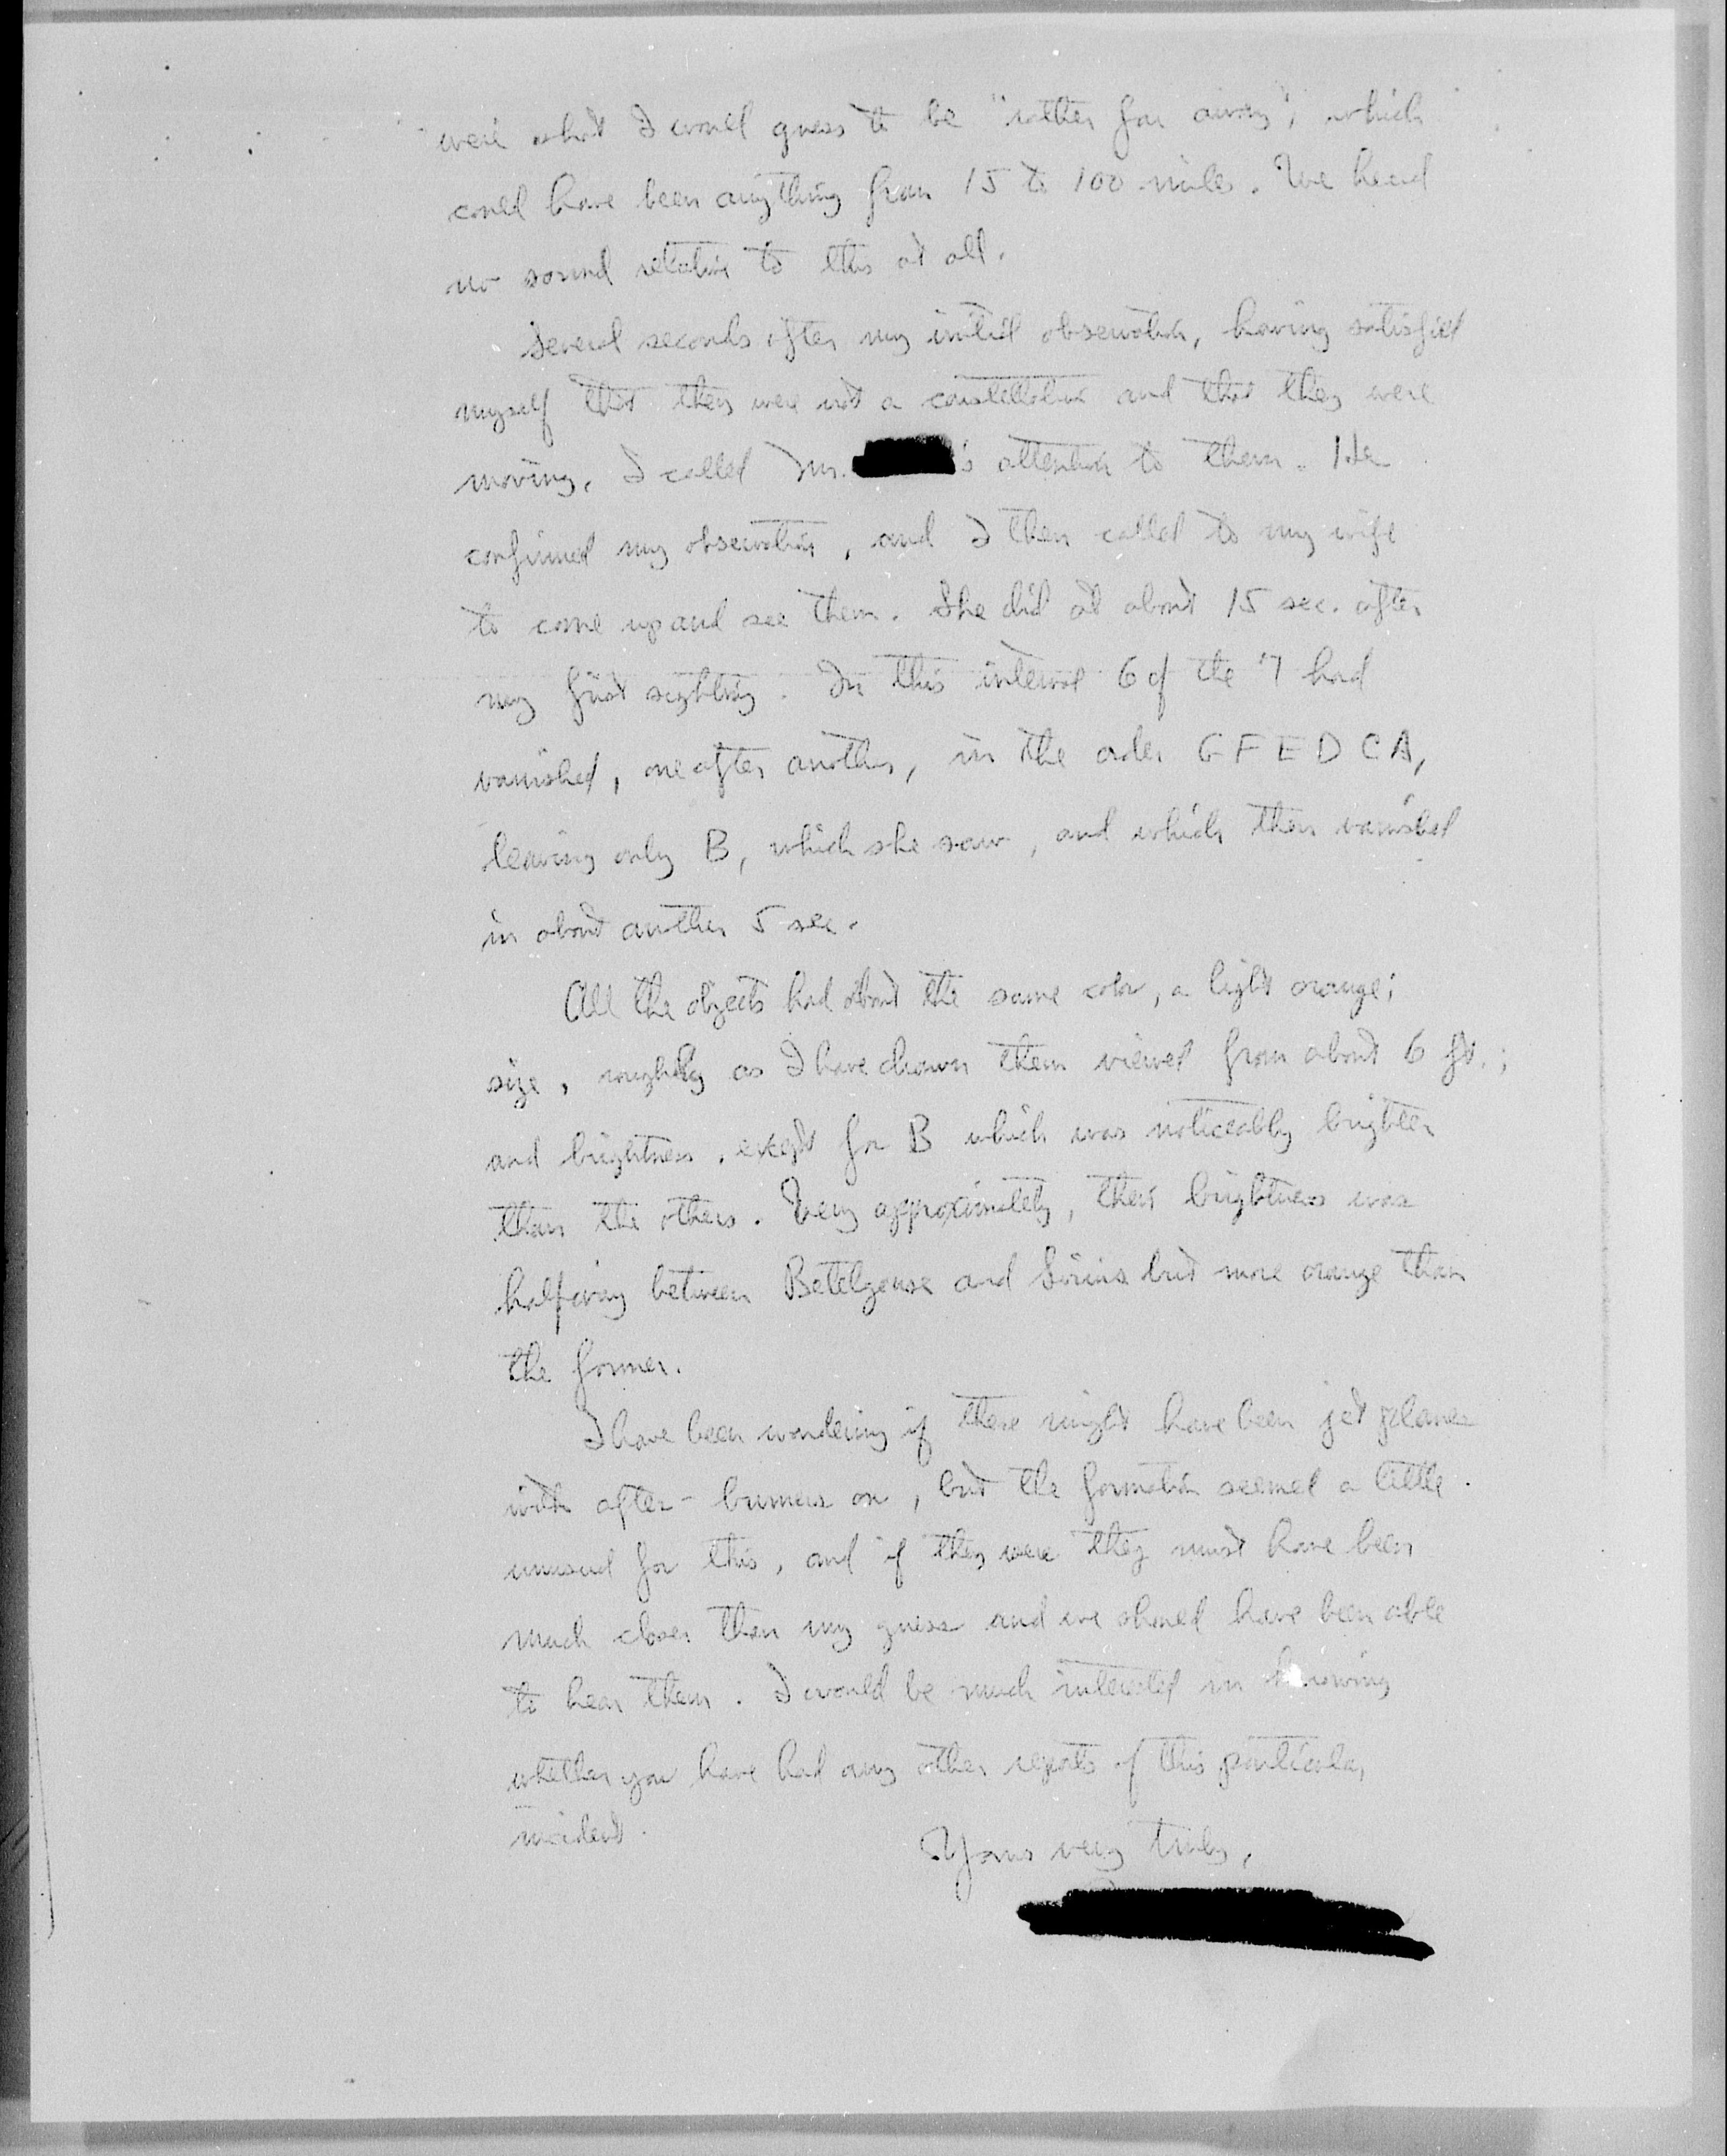 were what I would guess to be "rather far away", which
could have been anything from 15 to 100 miles. We heard
no sound relative to this at all.
Several seconds after my initial observation, having satisfied
myself that they were not a constellation and that they were
moving, I called Mr. 's attention to them. He
confirmed my observation, and I then called to my wife
to come up and see them. She did at about 15 sec. after
my first sighting. In this interval 6 of the 7 had
vanished, one after another, in the order G F E D C A,
leaving only B, which she saw, and which then vanished
in about another 5 sec.
All the objects had about the same color, a light orange;
size, roughly as I have drawn them viewed from about 6 ft.;
and brightness, except for B which was noticeably brighter
than the others. Very approximately, their brightness was
halfway between Betelgeuse and Sirius but more orange than
the former.
I have been wondering if these might have been jet planes
with after-burners on, but the formation seemed a little
unusual for this, and if they were they must have been
much closer than my guess and we should have been able
to hear them. I would be much interested in knowing
whether you have had any other reports of this particular
incident.
Yours very truly,